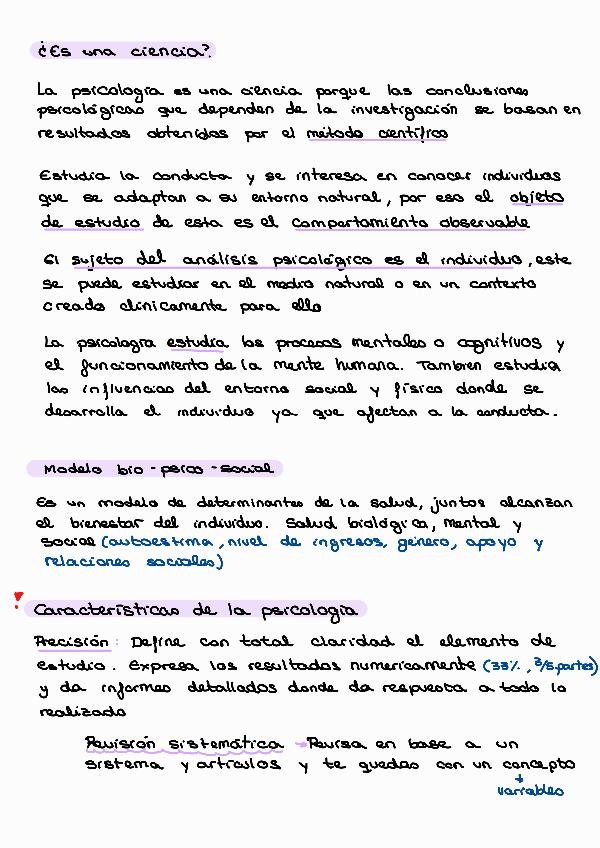 ¿Es una ciencia?
La psicología es una ciencia porque las conclusiones
psicológicas que dependen de la investigación se basan en
resultados obtenidos por el método científico
Estudia la conducta y se interesa en conocer individuos
que se adaptan a su entorno natural, por eso el objeto
de estudio de esta es el comportamiento observable
El sujeto del análisis psicológico es el individuo, este
se puede estudiar en el medio natural o en un contexto
creado clínicamente para ello
La psicología estudia los procesos mentales o cognitivos y
el funcionamiento de la mente humana. También estudia
las influencias del entorno social y físico donde se
desarrolla el individuo ya que afectan a la conducta.
Modelo bio - psico - social
Es un modelo de determinantes de la salud, juntos alcanzan
el bienestar del individuo. Salud biológica, mental y
social (autoestima, nivel de ingresos, género, apoyo y
relaciones sociales)
! Características de la psicología
Precisión: Define con total claridad el elemento de
estudio. Expresa los resultados numéricamente (33%, 2/5 partes)
y da informes detallados donde da respuesta a todo lo
realizado
Revisión sistemática → Revisa en base a un
sistema y artículos y te quedas con un concepto
+
variables